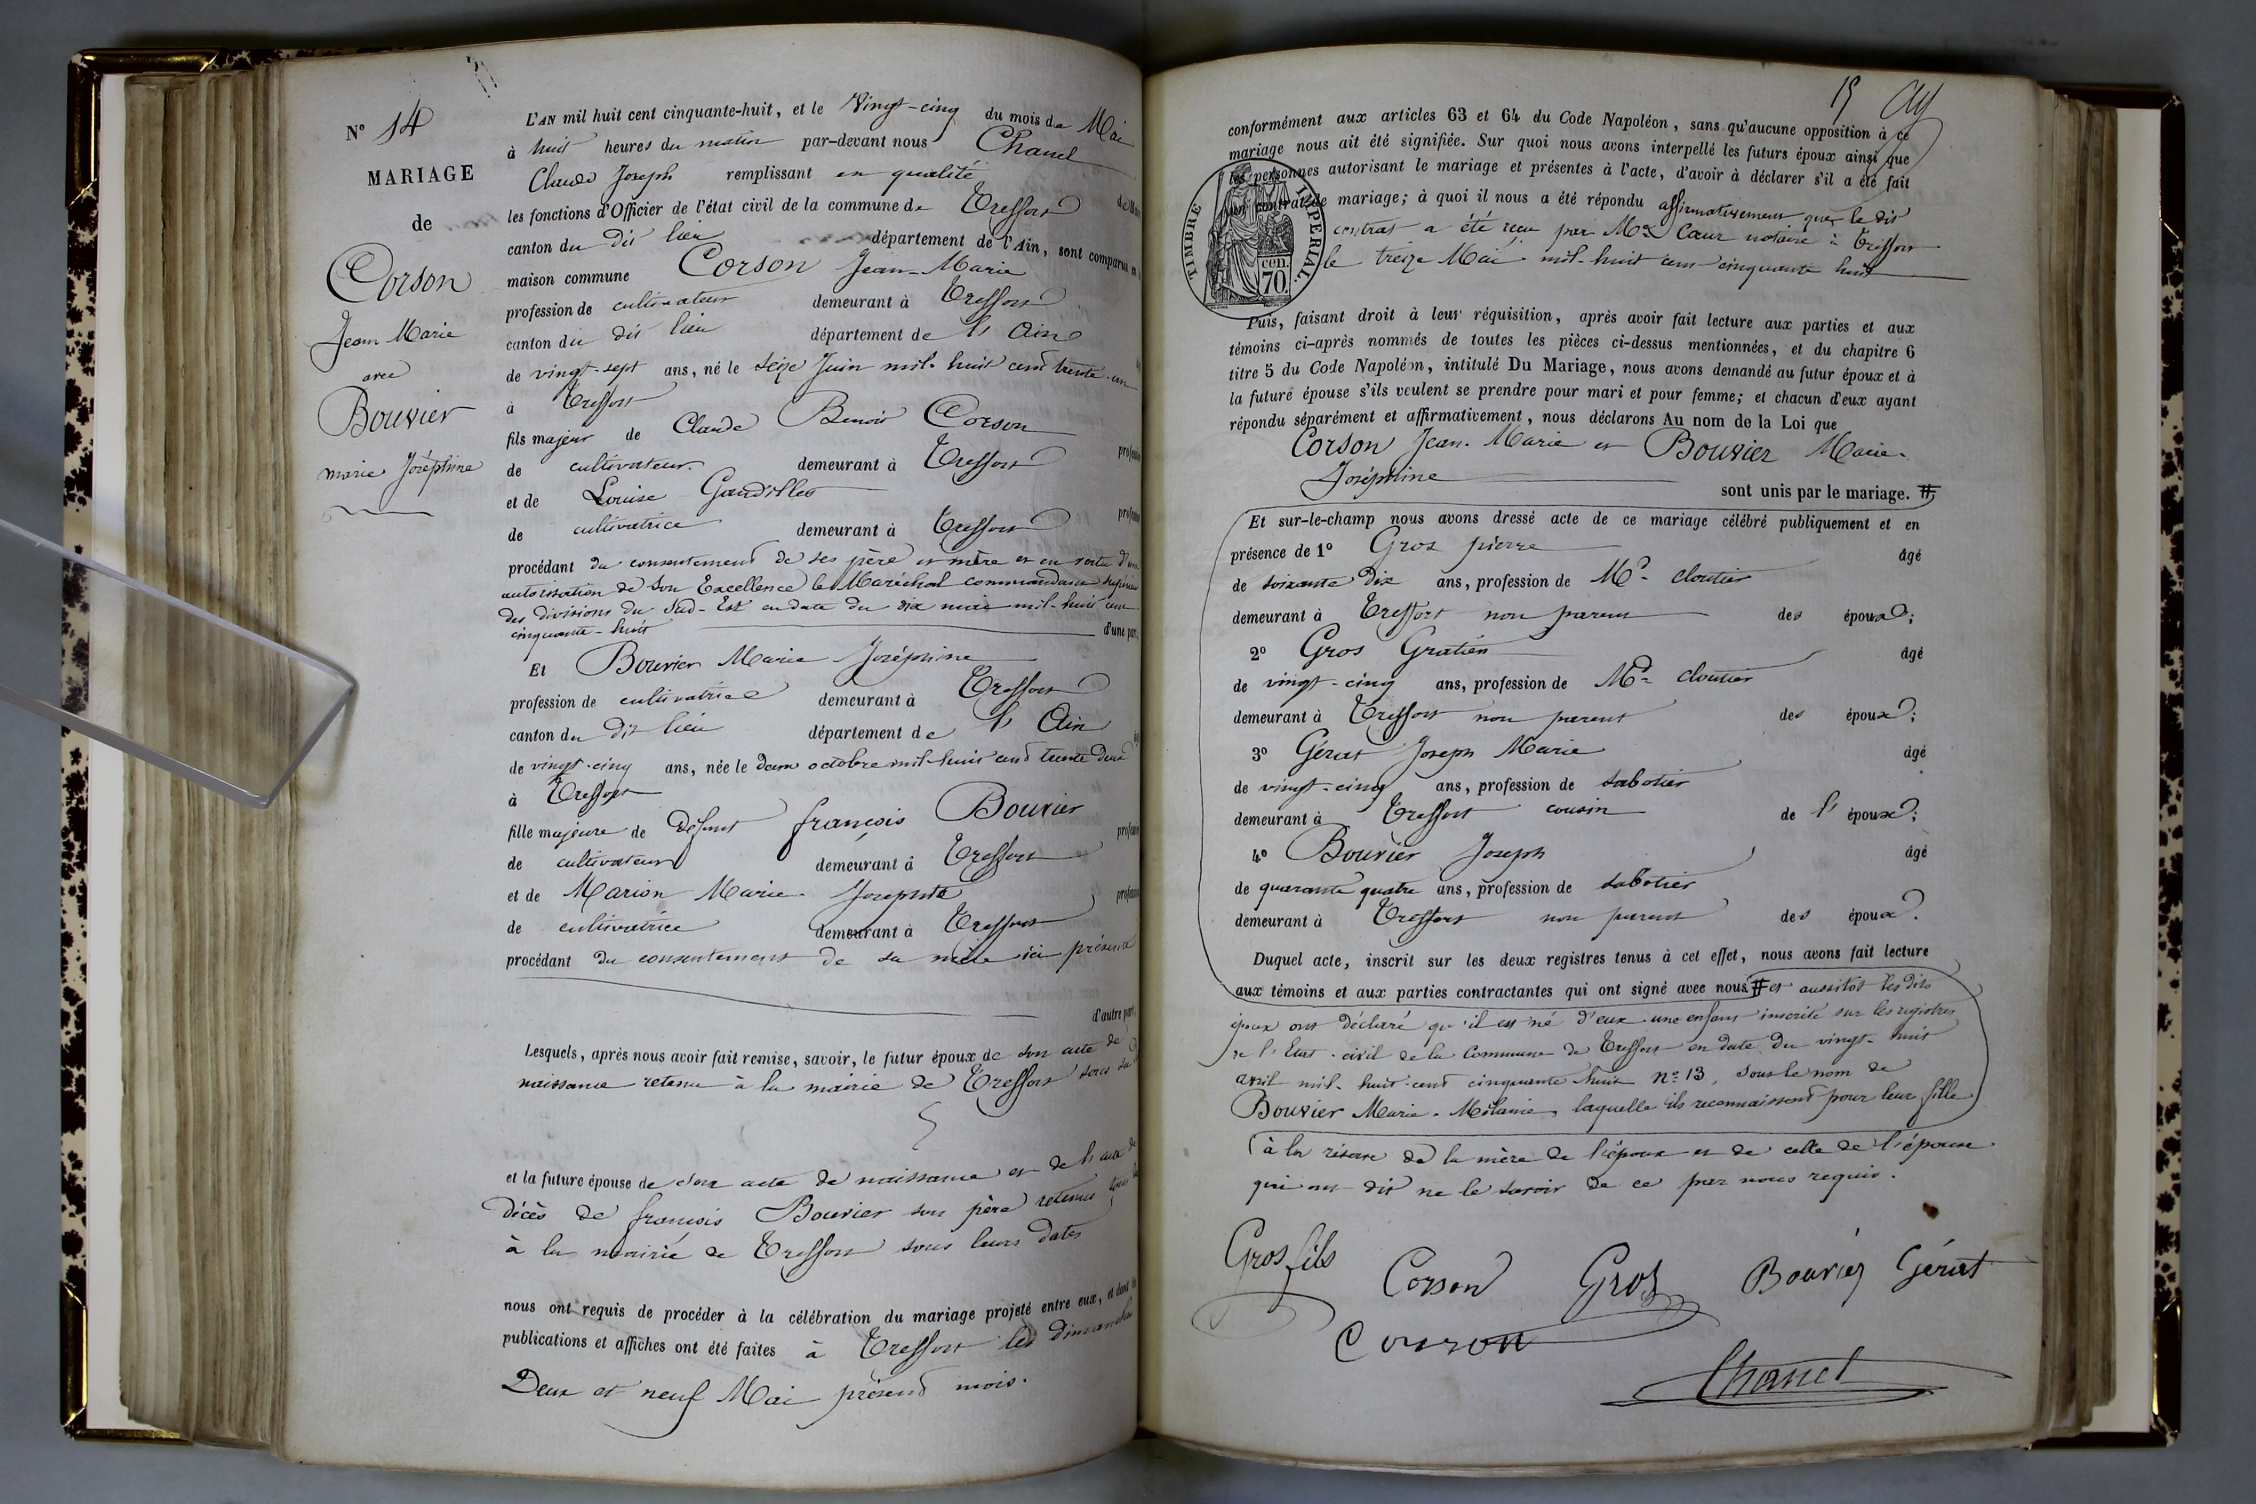 Nº 14
MARIAGE
de
Corson
Jean Marie
avec
Bouvier
marie Joséphine
L'AN mil huit cent cinquante-huit, et le Vingt-cinq du mois de Mai
à huit heures du matin par-devant nous Chanel
Claude Joseph remplissant en qualité
les fonctions d'Officier de l'état civil de la commune de Treffort
canton du dit lieu département de l'Ain, sont comparus en
maison commune Corson Jean-Marie
profession de cultivateur demeurant à Treffort
canton du dit lieu département de l'Ain
de vingt-sept ans, né le seize Juin mil-huit cent trente-un
à Treffort
fils majeur de Claude Benoit Corson
de cultivateur demeurant à Treffort
et de Louise Gaudillet
de cultivatrice demeurant à Treffort
procédant du consentement de ses père et mère et en vertu d'une
autorisation de Son Excellence le Maréchal commandant supérieur
des divisions du Sud-Est en date du dix mai mil-huit cent
cinquante-huit d'une part,
Et Bouvier Marie Joséphine
profession de cultivatrice demeurant à Treffort
canton du dit lieu département de l'Ain
de vingt-cinq ans, née le deux octobre mil-huit cent trente deux
à Treffort
fille majeure de défunt françois Bouvier
de cultivateur demeurant à Treffort
et de Marion Marie Josephte
de cultivatrice demeurant à Treffort
procédant du consentement de sa mère ici présente
d'autre part,
Lesquels, après nous avoir fait remise, savoir, le futur époux de son acte de
naissance retenu à la mairie de Treffort sous sa
et la future épouse de son acte de naissance et de l'acte de
décès de françois Bouvier son père retenus
à la mairie de Treffort sous leurs dates
nous ont requis de procéder à la célébration du mariage projeté entre eux, et dont les
publications et affiches ont été faites à Treffort les dimanches
Deux et neuf Mai présent mois.
15
conformément aux articles 63 et 64 du Code Napoléon, sans qu'aucune opposition à ce
mariage nous ait été signifiée. Sur quoi nous avons interpellé les futurs époux ainsi que
les personnes autorisant le mariage et présentes à l'acte, d'avoir à déclarer s'il a été fait
un contrat de mariage; à quoi il nous a été répondu affirmativement que le dit
contrat a été reçu par Me Cœur notaire à Treffort
le treize Mai mil-huit cent cinquante huit
TIMBRE IMPERIAL.
70 cen.
Puis, faisant droit à leur réquisition, après avoir fait lecture aux parties et aux
témoins ci-après nommés de toutes les pièces ci-dessus mentionnées, et du chapitre 6
titre 5 du Code Napoléon, intitulé Du Mariage, nous avons demandé au futur époux et à
la future épouse s'ils veulent se prendre pour mari et pour femme; et chacun d'eux ayant
répondu séparément et affirmativement, nous déclarons Au nom de la Loi que
Corson Jean-Marie et Bouvier Marie-
Joséphine
sont unis par le mariage. #
Et sur-le-champ nous avons dressé acte de ce mariage célébré publiquement et en
présence de 1º Gros pierre âgé
de soixante dix ans, profession de Md cloutier
demeurant à Treffort non parent des époux;
2º Gros Gratien âgé
de vingt-cinq ans, profession de Md cloutier
demeurant à Treffort non parent des époux;
3º Gérat Joseph Marie âgé
de vingt-cinq ans, profession de sabotier
demeurant à Treffort cousin de l'époux;
4º Bouvier Joseph âgé
de quarante quatre ans, profession de sabotier
demeurant à Treffort non parent des époux.
Duquel acte, inscrit sur les deux registres tenus à cet effet, nous avons fait lecture
aux témoins et aux parties contractantes qui ont signé avec nous # et aussitôt les dits
époux ont déclaré qu'il est né d'eux une enfant inscrite sur les registres
de l'Etat-civil de la Commune de Treffort en date du vingt-huit
avril mil-huit-cent cinquante huit nº 13, sous le nom de
Bouvier Marie-Mélanie, laquelle ils reconnaissent pour leur fille
à la réserve de la mère de l'époux et de celle de l'épouse
qui ont dit ne le savoir de ce par nous requis.
Gros fils Corson Gros Bouvier Gérat
Courson
Chanel